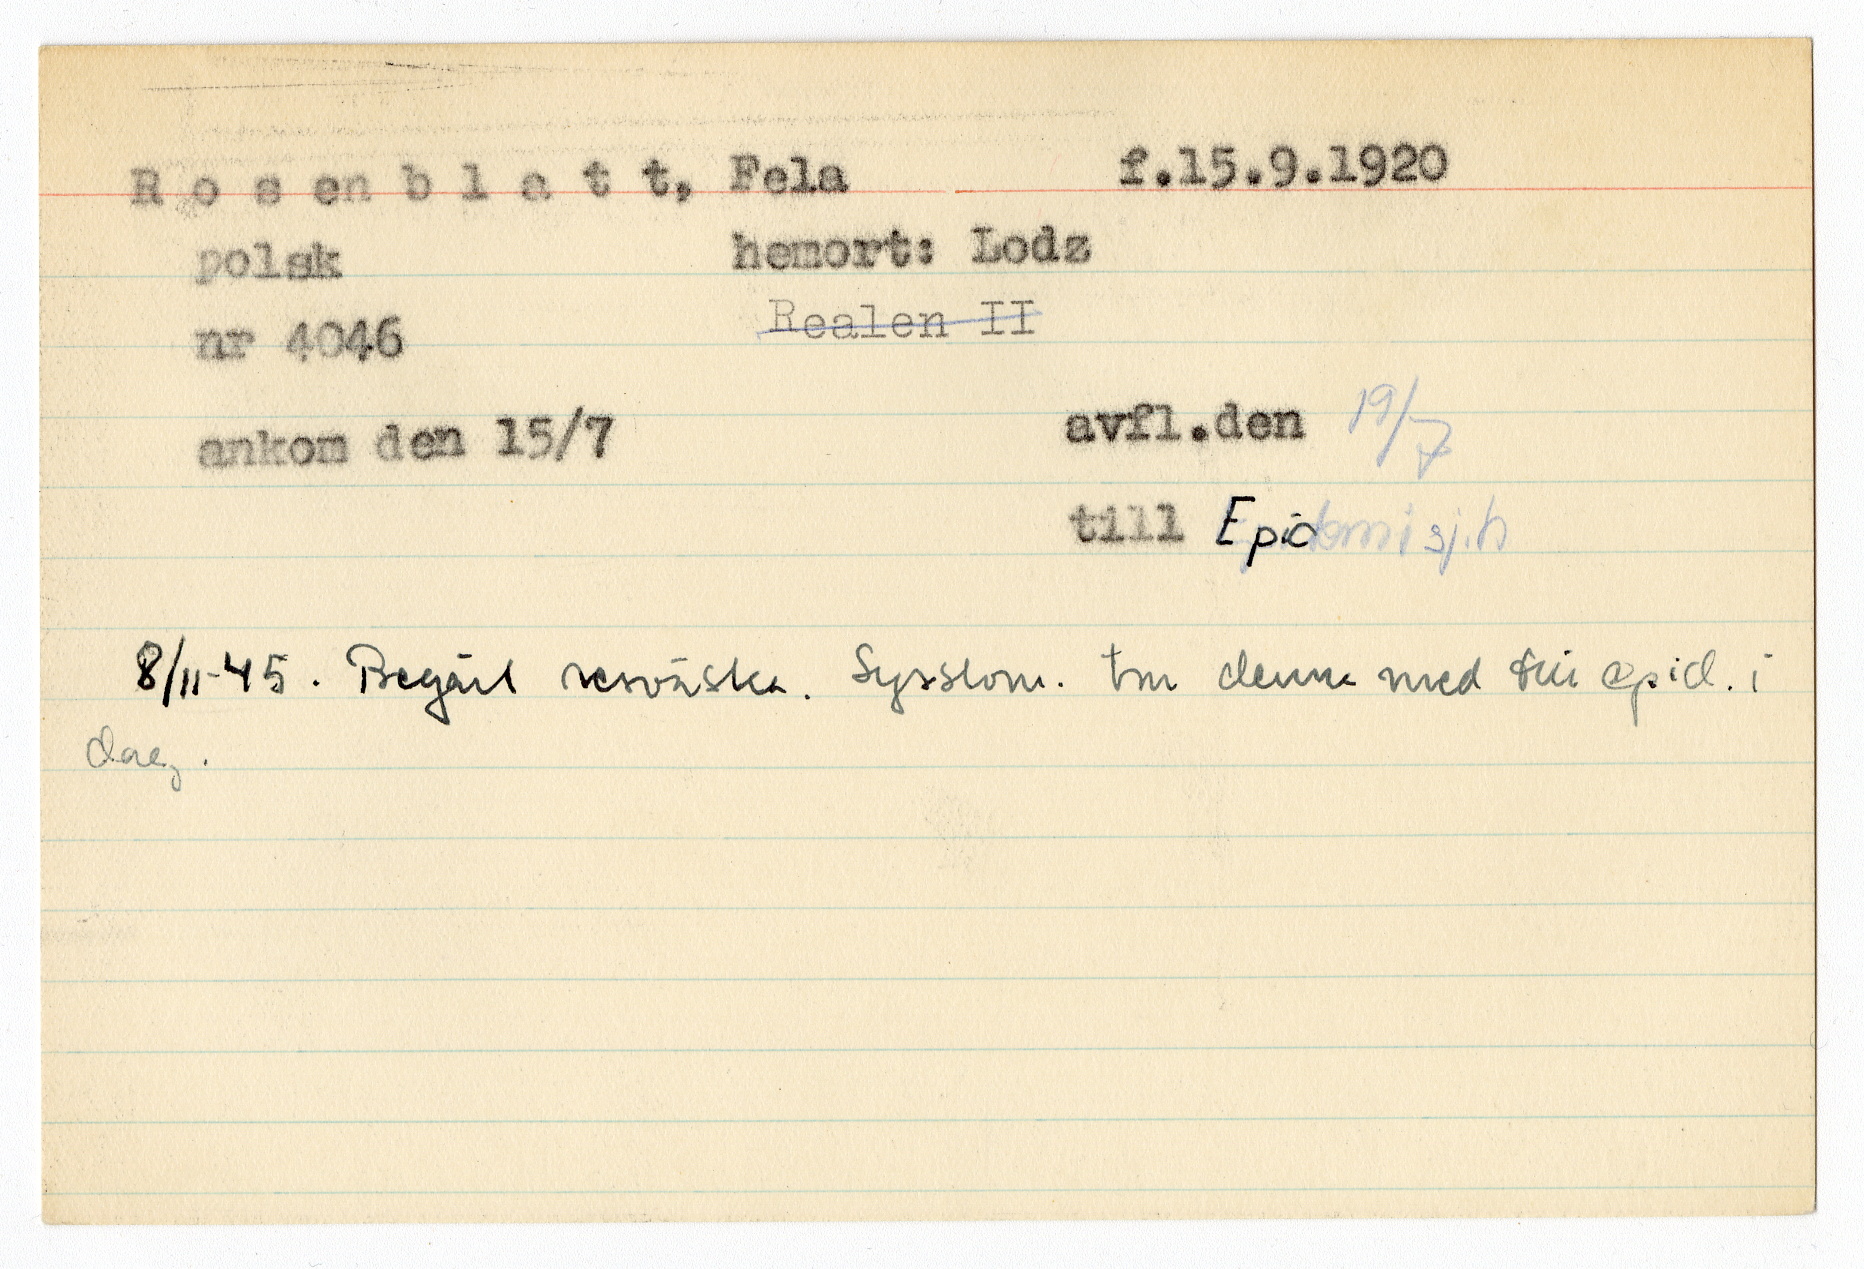 Rosenblatt, Fela f.15.9.1920
polsk hemort: Lodz
nr 4046 Realen II
ankom den 15/7 avfl.den 19/7
till Epidemisjh
8/11-45. Begärt resväska. Sysslom. tm denna med till epid. i
dag.